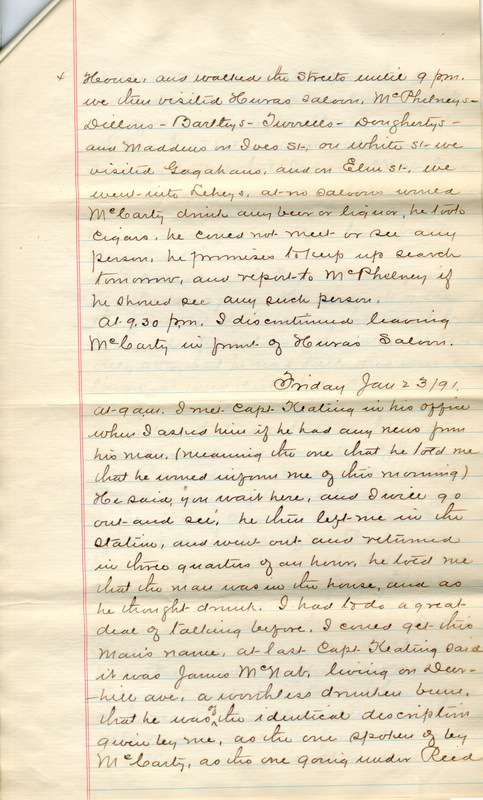 4 House, and walked the streets untill 9 p.m.
we then visited Huvas Saloon, McPhelneys-
Dillons - Bartleys - Turrells - Dougherty's -
and Maddens on Ives St., on white St we
visited Gagahans, and on Elm St, we
went into Leheys, at no Saloons would
McCarty drink any beer or liquor, he took
Cigars, he could not meet or see any
person, he promises to keep up search
tomorrow, and report to McPhelney if
he should see any such person.
At 9.30 p.m. I discontinued leaving
McCarty in front of Huvas Saloon.
Friday Jan 23/91.
at 9 a.m. I met Capt. Keating in his office
when I asked him if he had any news from
his man, (meaning the one that he told me
that he would inform me of this morning)
He said, "you wait here, and I will go
out and see", he then left me in the
Station, and went out and returned
in three quarters of an hour, he told me
that the man was in the house, and as
he thought drunk. I had to do a great
deal of talking before, I could get this
man's name, at last Capt Keating said
it was James McNab, living on Deer-
hill ave, a worthless drunken bum,
that he was of the identical discription
given by me, as the one spoken of by
McCarty, as the one going under Reed